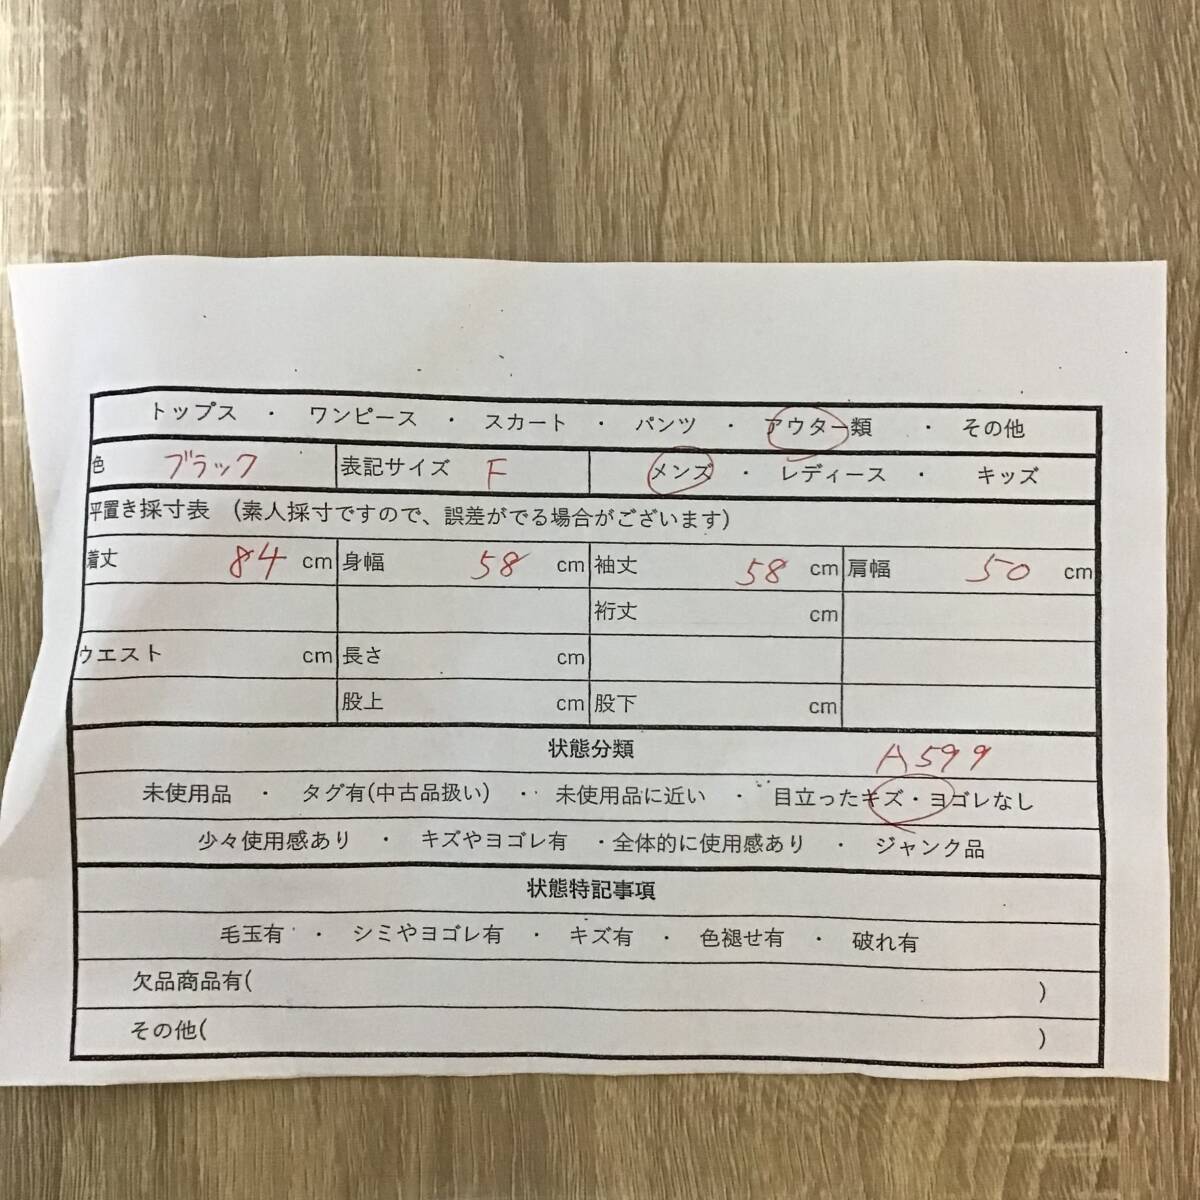 トップス ・ ワンピース ・ スカート ・ パンツ ・ アウター類 ・ その他
色 ブラック 表記サイズ F メンズ ・ レディース ・ キッズ
平置き採寸表 (素人採寸ですので、誤差がでる場合がございます)
着丈 84 cm 身幅 58 cm 袖丈 58 cm 肩幅 50 cm
裄丈 cm
ウエスト cm 長さ cm
股上 cm 股下 cm
状態分類 A599
未使用品 ・ タグ有(中古品扱い) ・ 未使用品に近い ・ 目立ったキズ・ヨゴレなし
少々使用感あり ・ キズやヨゴレ有 ・全体的に使用感あり ・ ジャンク品
状態特記事項
毛玉有 ・ シミやヨゴレ有 ・ キズ有 ・ 色褪せ有 ・ 破れ有
欠品商品有( )
その他( )